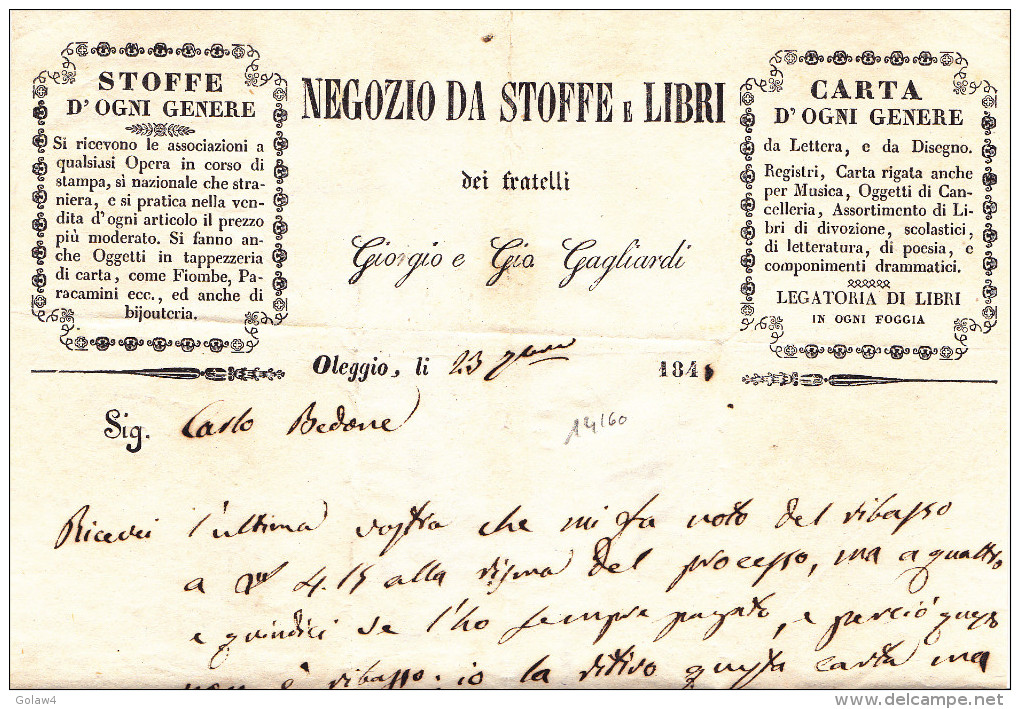 STOFFE
D'OGNI GENERE
Si ricevono le associazioni a
qualsiasi Opera in corso di
stampa, sì nazionale che stra-
niera, e si pratica nella ven-
dita d'ogni articolo il prezzo
più moderato. Si fanno an-
che Oggetti in tappezzeria
di carta, come Fiombe, Pa-
racamini ecc., ed anche di
bijouteria.
NEGOZIO DA STOFFE E LIBRI
dei fratelli
Giorgio e Gio Gagliardi
CARTA
D'OGNI GENERE
da Lettera, e da Disegno.
Registri, Carta rigata anche
per Musica, Oggetti di Can-
celleria, Assortimento di Li-
bri di divozione, scolastici,
di letteratura, di poesia, e
componimenti drammatici.
LEGATORIA DI LIBRI
IN OGNI FOGGIA
Oleggio, li 23 184
Sig. Carlo Bedone
14/60
Ricevei l'ultima vostra che mi fa noto del ribasso
a 4.15 alla risma del processo, ma a quattro
e quindici se l'ho sempre pagato, e perciò questo
non è ribasso; io la ritiro questa carta ma
Golaw4